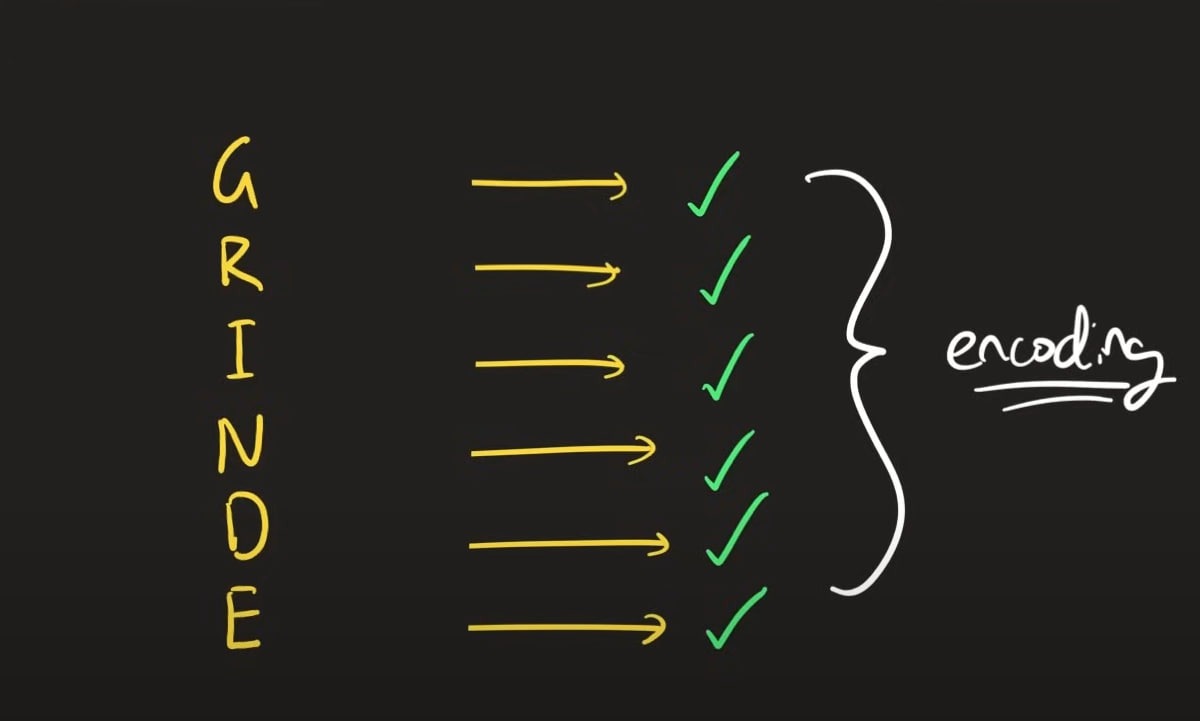 G
R
I
N
D
E
encoding